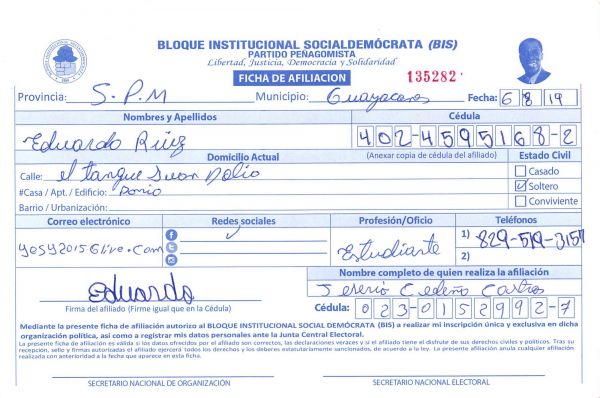 BLOQUE INSTITUCIONAL SOCIALDEMÓCRATA (BIS)
PARTIDO PEÑAGOMISTA
Libertad, Justicia, Democracia y Solidaridad
FICHA DE AFILIACION
135282
Provincia: S.P.M Municipio: Guayacanes Fecha: 6 8 19
Nombres y Apellidos Cédula
Eduardo Ruiz 402-4595168-2
Domicilio Actual (Anexar copia de cédula del afiliado) Estado Civil
Calle: el tanque Juan Dolio Casado
#Casa / Apt. / Edificio: Soltero
Barrio / Urbanización: Conviviente
Correo electrónico Redes sociales Profesión/Oficio Teléfonos
yesy2015@live.com Estudiante 1) 829-519-3157
2)
Nombre completo de quien realiza la afiliación
Eduardo Cedeño Castro
Firma del afiliado (Firme igual que en la Cédula) Cédula: 023-0152992-7
Mediante la presente ficha de afiliación autorizo al BLOQUE INSTITUCIONAL SOCIAL DEMÓCRATA (BIS) a realizar mi inscripción única y exclusiva en dicha
organización política, así como a registrar mis datos personales ante la Junta Central Electoral.
La presente ficha de afiliación es válida si los datos ofrecidos por el afiliado son correctos, las declaraciones veraces y si el afiliado tiene el disfrute de sus derechos civiles y políticos. Tras su
recepción, sello y firmas autorizadas el afiliado ejercerá todos los derechos y los deberes estatutariamente sancionados, de acuerdo a la ley. La presente afiliación anula cualquier afiliación
realizada con anterioridad a la fecha que aparece en esta ficha.
SECRETARIO NACIONAL DE ORGANIZACIÓN SECRETARIO NACIONAL ELECTORAL